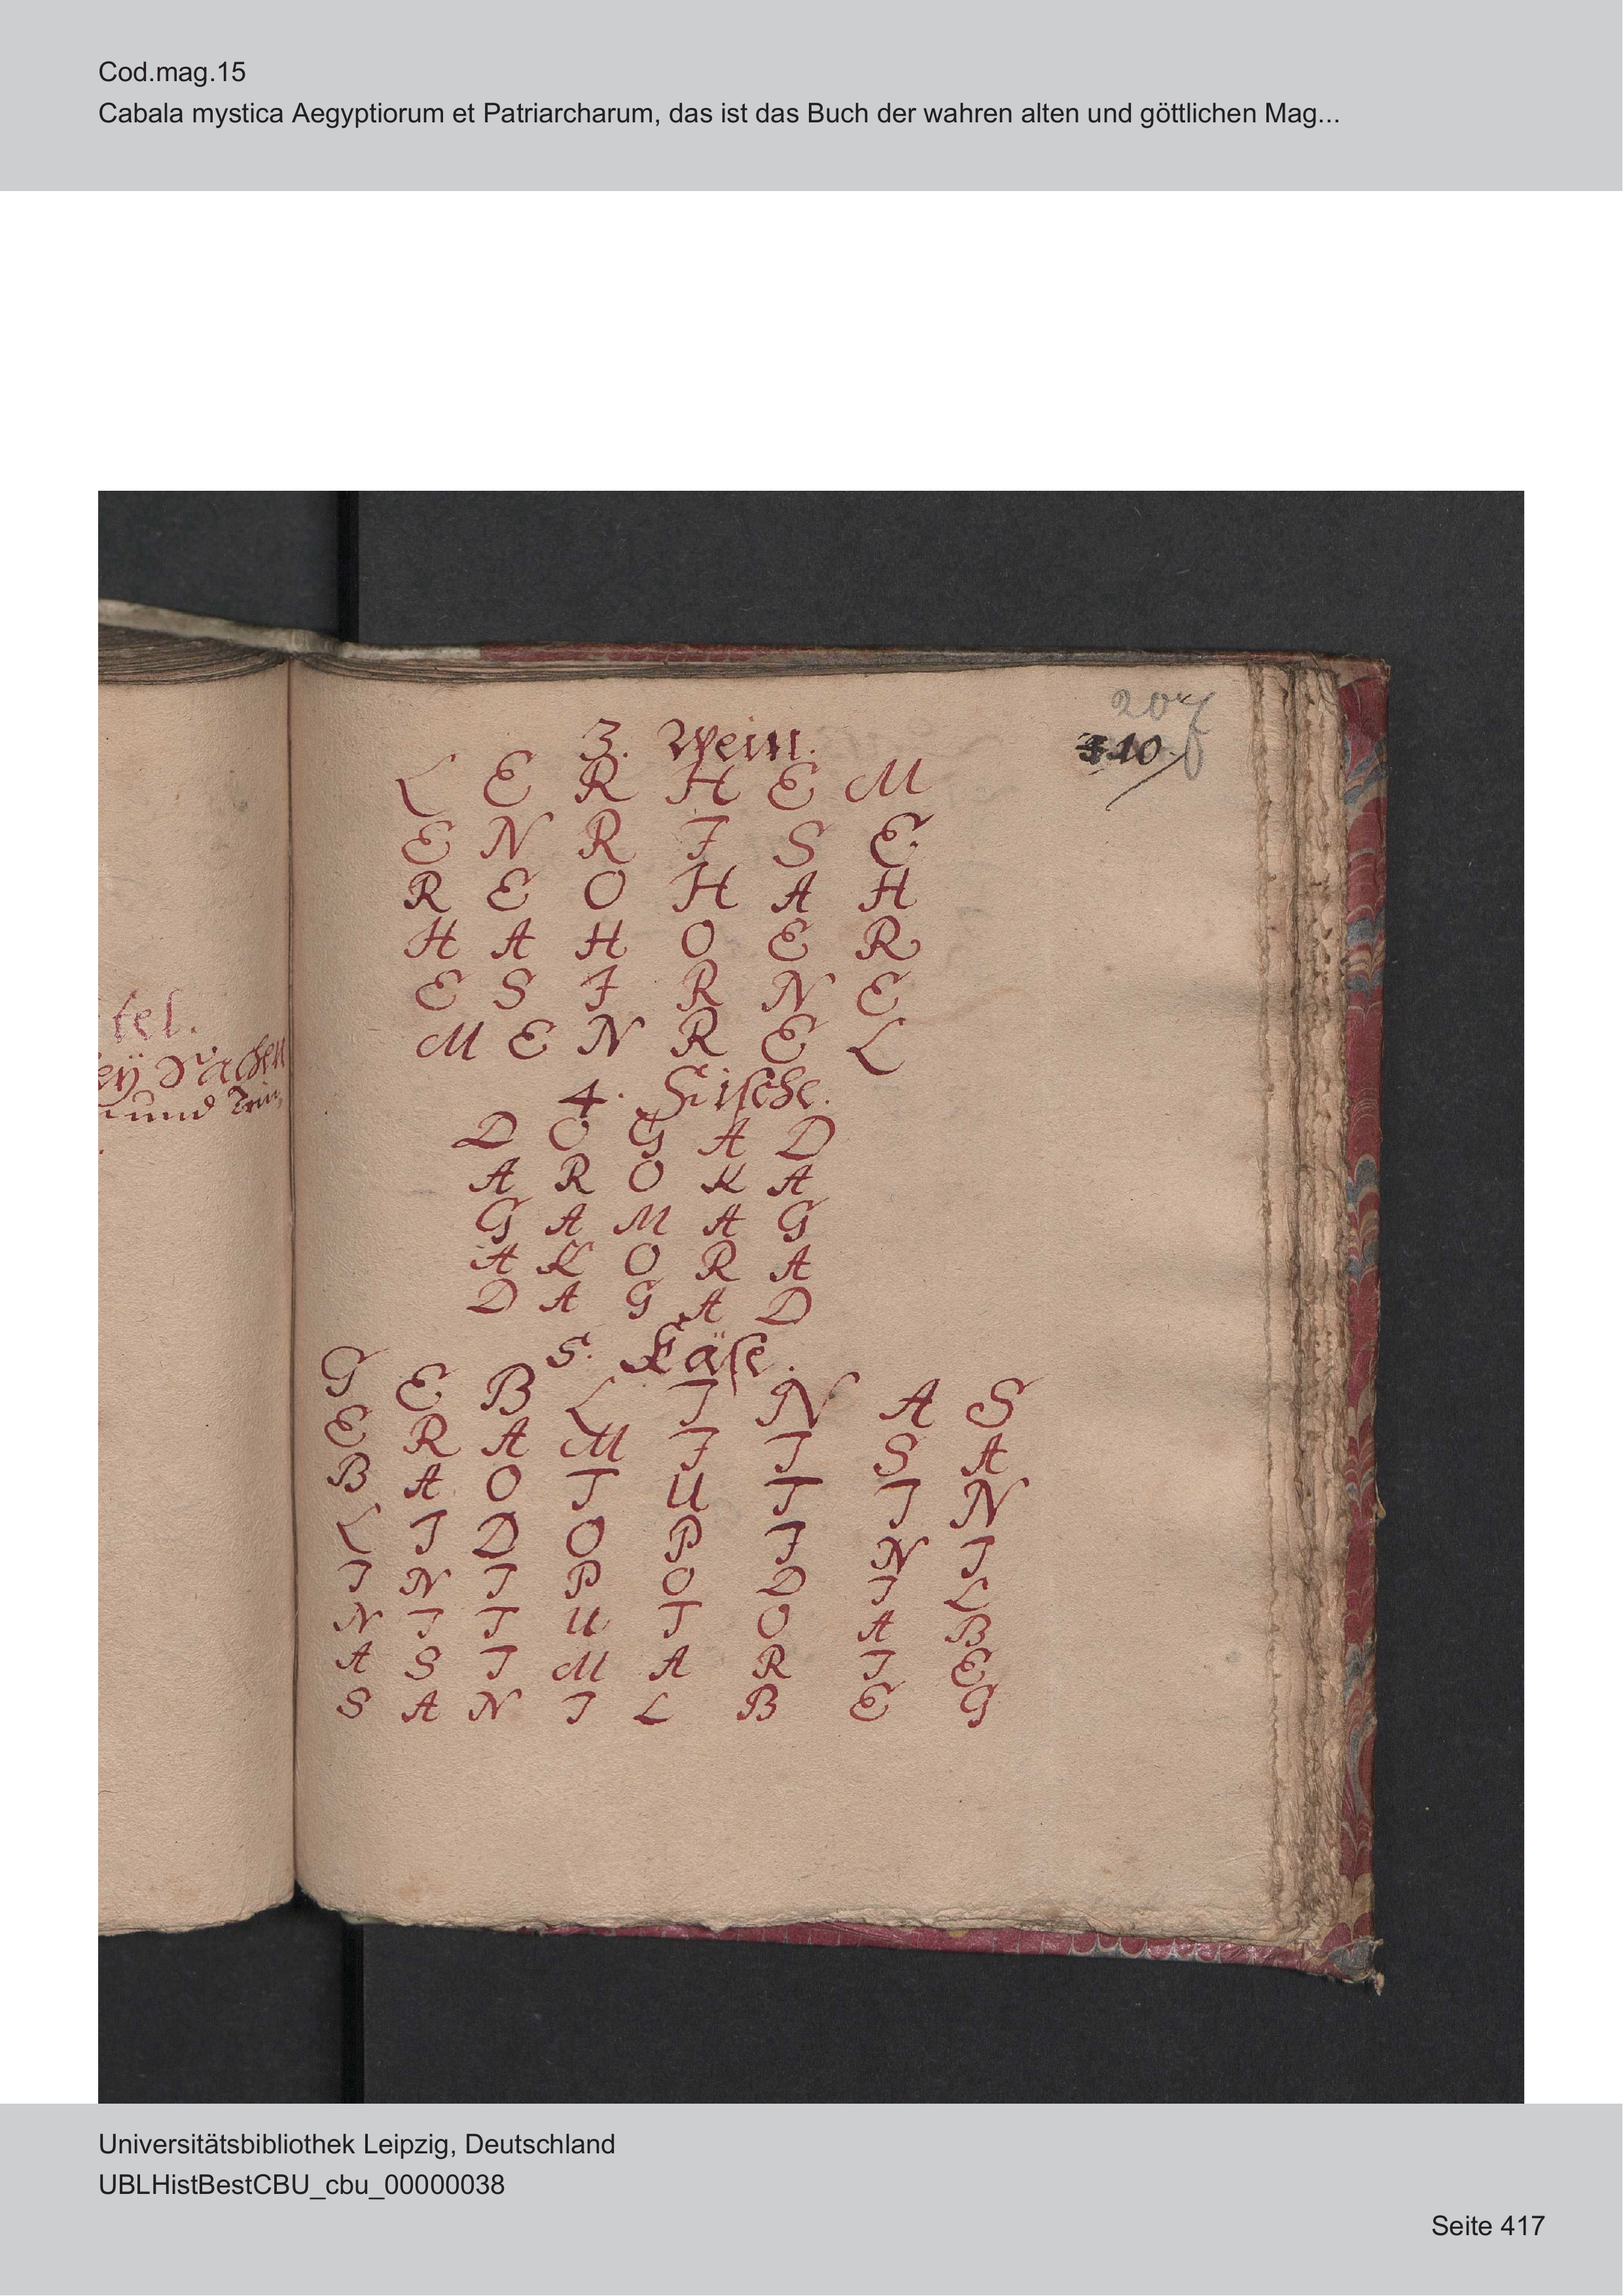 Cod.mag.15
Cabala mystica Aegyptiorum et Patriarcharum, das ist das Buch der wahren alten und göttlichen Mag...
tel.
eÿ Sachen
und Trin
207
110
3. Wein.
L E R H E M
E N R I S E
R E O H A H
H A H O E R
E S I R N E
M E N R E L
4. Fische.
D O G A D
A R O K A
G A M A G
A K O R A
D A G A D
5. Käse.
G E B L I N A S
E R A M I I S A
B A O T U T I N
L I D O P I N I
I N I P O D I L
N I T U T O A B
A S I M A R I E
S A N I L B E G
Universitätsbibliothek Leipzig, Deutschland
UBLHistBestCBU_cbu_00000038
Seite 417